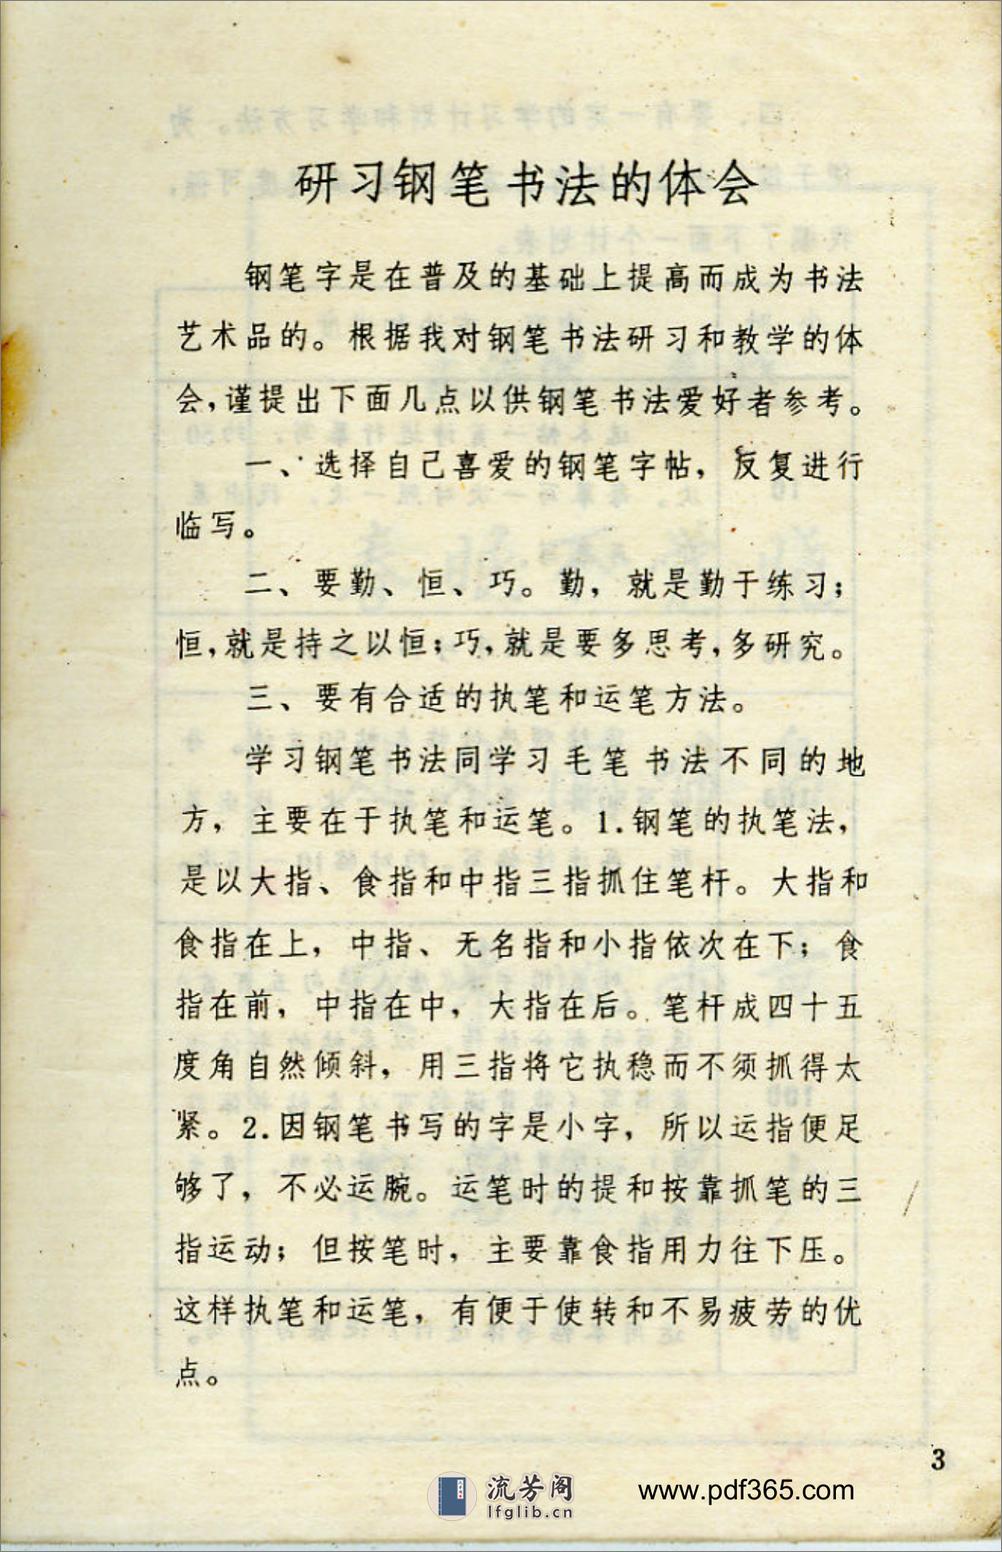 研习钢笔书法的体会
钢笔字是在普及的基础上提高而成为书法
艺术品的。根据我对钢笔书法研习和教学的体
会,谨提出下面几点以供钢笔书法爱好者参考。
一、选择自己喜爱的钢笔字帖，反复进行
临写。
二、要勤、恒、巧。勤，就是勤于练习；
恒,就是持之以恒;巧,就是要多思考,多研究。
三、要有合适的执笔和运笔方法。
学习钢笔书法同学习毛笔书法不同的地
方，主要在于执笔和运笔。1.钢笔的执笔法，
是以大指、食指和中指三指抓住笔杆。大指和
食指在上，中指、无名指和小指依次在下；食
指在前，中指在中，大指在后。笔杆成四十五
度角自然倾斜，用三指将它执稳而不须抓得太
紧。2.因钢笔书写的字是小字，所以运指便足
够了，不必运腕。运笔时的提和按靠抓笔的三
指运动；但按笔时，主要靠食指用力往下压。
这样执笔和运笔，有便于使转和不易疲劳的优
点。
3
流芳阁
lfglib.cn
www.pdf365.com